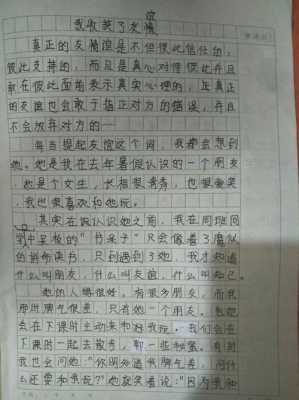 我收获了友谊
真正的友情谊是不但彼此信任的，
彼此支持的，而且是真心对待彼此并且
敢在彼此面前表示真实心理的，且真正
的友谊也会敢于指正对方的错误，并且
不会放弃对方的一
每当提起友谊这个词，我都会想到
她。她是我在去年暑假认识的一个朋友
，她是个女生，长相很清秀，也很爱笑
，我也很喜欢和她玩。
其实在没认识她之前，我在同班同
学中呈极的"书呆子"只会像着了魔似
的拼命读书，只到遇到了她，我才知道
什么叫朋友，什么叫友谊，什么叫知己。
她的人缘很好，有很多朋友，而我
那时脾气很差，只有她一个朋友。她总
会在下课时主动来和我玩。我们会在
下课时一起去散步，聊一些秘密。有时
我也会问她："你明知道我脾气差，为什
么还要和我玩？"她就笑着说："因为我和